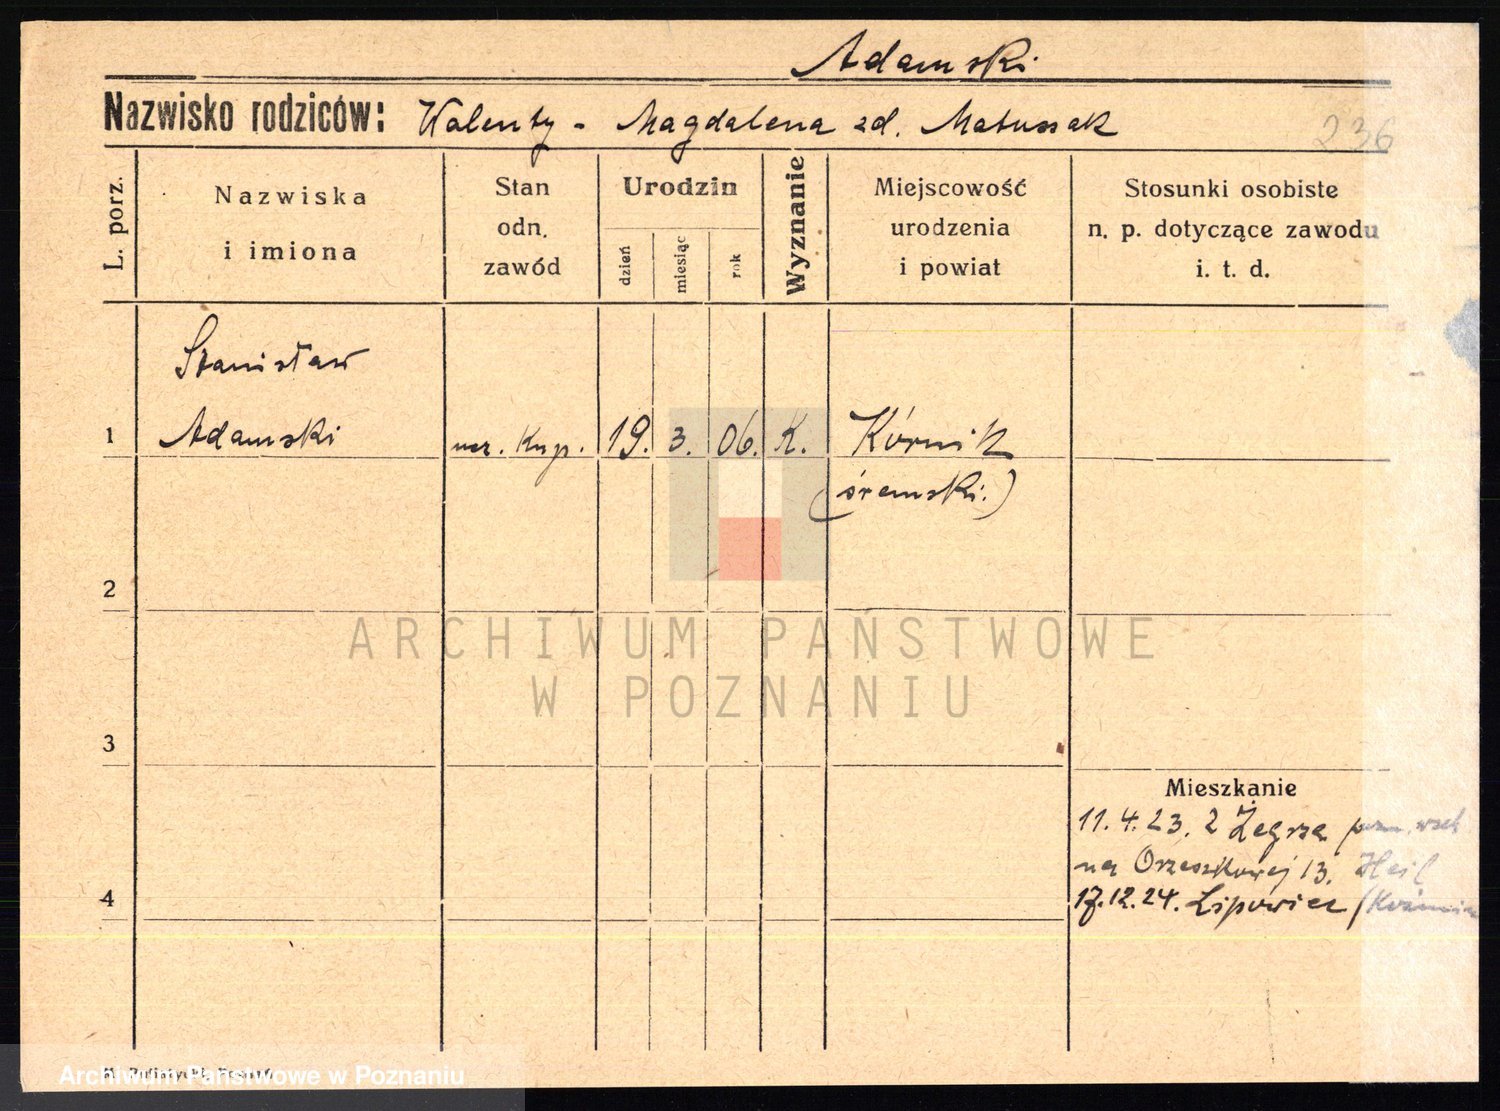 Adamski
Nazwisko rodziców: Walenty - Magdalena zd. Matuszak
236
L. porz.
Nazwiska
i imiona
Stan
odn.
zawód
Urodzin
dzień
miesiąc
rok
Wyznanie
Miejscowość
urodzenia
i powiat
Stosunki osobiste
n. p. dotyczące zawodu
i. t. d.
Stanisław
1 Adamski ucz. Kup. 19. 3. 06. K. Kórnik
(śremski.)
2
3
4
Mieszkanie
11. 4. 23. z Żegrza pozn. wsch
na Orzeszkowej 13. Heil
17.12.24. Lipowiec (Koźmin
ARCHIWUM PAŃSTWOWE
W POZNANIU
Archiwum Państwowe w Poznaniu